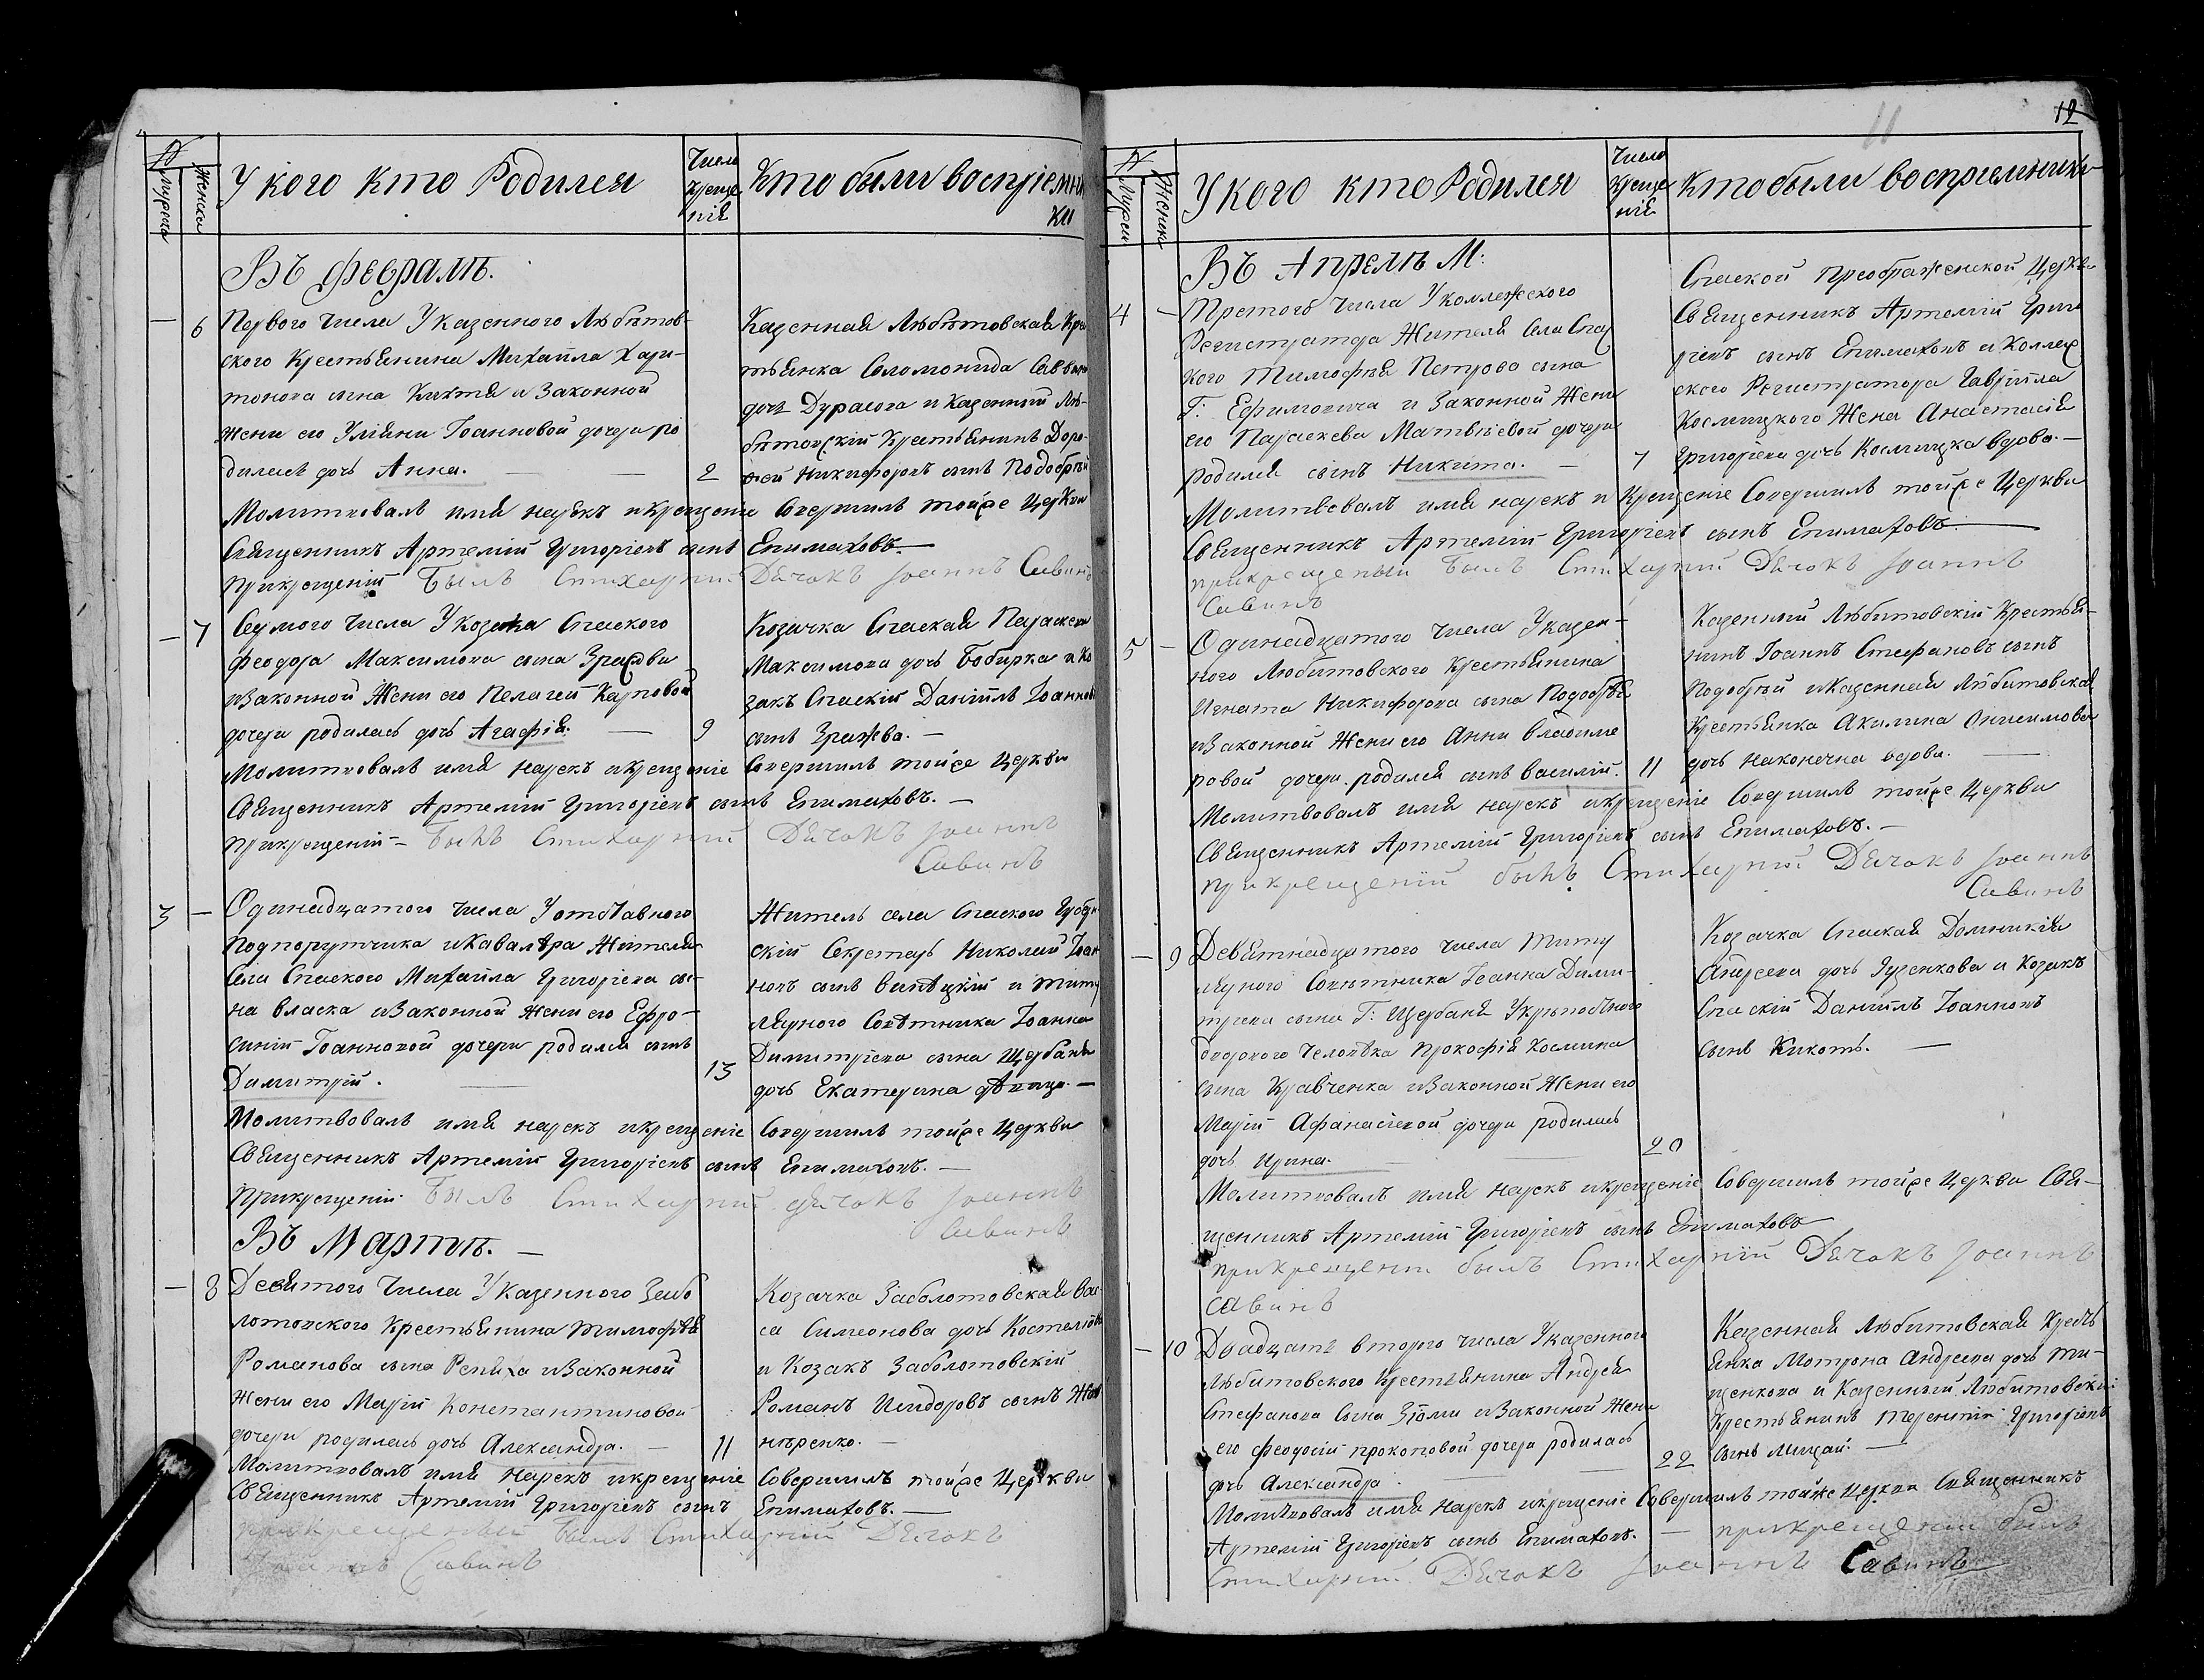 №
Мужеска
Женска
У кого кто Родился
Число крещенія
Кто были воспріемники
Въ Февралѣ.
— 6 Первого числа У казенного Любѣтов-
ского Крестьянина Михаила Хари-
тонова сына и Законной
жени его Уліяни Іоанновой дочери ро
дилась дочь Анна. — 2
Казенная Любѣтовская Крес
тьянка Соломонида Саввина
дочь Дурасова и Казенный Лю-
бѣтовскій Крестьянинъ Доро-
фей Никифоровъ сынъ Подобрѣй
Молитвовалъ имя нарекъ и крещеніе Совершилъ тойже Церкви
Священникъ Артемій Григоріевъ сынъ Епимаховъ. —
При крещеніи Былъ Стихарній Дьячокъ Іоаннъ Савинъ
— 7 Седмого Числа У козака Спаского
Феодора Максимова сына
и Законной Жени его Пелагеи Карповой
дочери родилась дочь Агафія. — 9
Козачка Спаская Параскева
Максимова дочь Бобирка и Ко
закъ Спаскій Даніилъ Іоанновъ
сынъ Зражева. —
Молитвовалъ имя нарекъ и крещеніе Совершилъ тойже Церкви
Священникъ Артемій Григоріевъ сынъ Епимаховъ. —
При крещеніи — Былъ Стихарний Дьячокъ Іоаннъ
Савинъ
3 — Одинадцатого Числа У отставного
Подпорутчика и Кавалѣра Жителя
Села Спаского Михаила Григоріева сы-
на Власка и Законной жени его Ефро-
синіи Іоанновой дочери родился сынъ
Димитрій. — 13
Житель села Спаского Губерн
скій Секретарь Николай Іоан
новъ сынъ и Титу
лярного Совѣтника Іоанна
Димитріева сына Щербаня
дочь Екатерина дѣвица. —
Молитвовалъ имя нарекъ и крещеніе Совершилъ тойже Церкви
Священникъ Артемій Григоріевъ сынъ Епимаховъ. —
При крещеніи Былъ Стихарний дьячокъ Іоаннъ
Савинъ
Въ Мартѣ. —
— 8 Девятого Числа У Казенного Забо
лотовского Крестьянина Тимофѣя
Романова сына Репяха и Законной
Жени его Маріи Константиновой
дочери родилась дочь Александра. — 11
Козачка Заболотовская Вас
са Симеонова дочь
и Козакъ Заболотовскій
Романъ Исидоровъ сынъ
нѣренко. —
Молитвовалъ имя нарекъ и крещеніе Совершилъ тойже Церкви
Священникъ Артемій Григоріевъ сынъ Епимаховъ. —
При крещеніи былъ Стихарний Дьячокъ
Іоаннъ Савинъ
11
12
№
Мужеск
Женск
У кого кто Родился
Число крещенія
Кто были воспріемники
Въ Апрелѣ М:
4 — Третого Числа У коллежского
Регистратора Жителя Села Спас
кого Тимофѣя Петрова сына
Г: Ефимовича и Законной Жени
его Параскевы Матвѣевой дочери
родился сынъ Никита. — 7
Спаской Преображенской Церкви
Священникъ Артемій Григо
ріевъ сынъ Епимаховъ и Коллеж
ского Регистратора Гавріила
Космицкого Жена Анастасія
Григоріева дочь Космицка вдова. —
Молитвовалъ имя нарекъ и Крещеніе Совершилъ тойже Церкви
Священникъ Артемій Григоріевъ сынъ Епимаховъ. —
при крещеныи Былъ Стихарний Дьячокъ Іоаннъ
Савинъ
5 — Одинадцатого числа У казен-
ного Любитовского Крестьянина
Игната Никифорова сына Подобрѣя
и Законной Жени его Анни Владиме
ровой дочери родился сынъ Василій. 11
Казенный Любитовскій Крестья-
нинъ Іоаннъ Стефановъ сынъ
Подобрѣй и Казенная Любитовская
Крестьянка Акилина Онисимова
дочь Наконечна вдова. —
Молитвовалъ имя нарекъ и крещеніе Совершилъ тойже Церкви
Священникъ Артемій Григоріевъ сынъ Епимаховъ. —
При крещеніи былъ Стихарной Дьячокъ Іоаннъ
Савинъ
— 9 Девятнадцатого числа Титу
лярного Совѣтника Іоанна Дими-
тріева сына Г: Щербаня У крѣпостного
дворового человѣка Прокофія Космина
сына Кравченка и Законной Жени его
Маріи Афанасіевой дочери родилась
дочь Ирина. — 20
Козачка Спаская Домникія
Андреева дочь и Козакъ
Спаскій Даніилъ Іоанновъ
сынъ Кикоть. —
Молитвовалъ имя нарекъ и крещеніе Совершилъ тойже Церкви Свя-
щенникъ Артемій Григоріевъ сынъ Епимаховъ
при крещении былъ Стихарній Дьячокъ Іоаннъ
Савинъ
— 10 Двадцать второго числа У казенного
Любитовского крестьянина Андрея
Стефанова Сына Зюми и Законной Жени
его Феодосіи Прокоповой дочери родилась
дочь Александра. 22
Казенная Любитовская Кресть
янка Мотрона Андреева дочь Ти-
щенкова и Казенный Любитовскій
Крестьянинъ Терентій Григоріевъ
сынъ Мицай. —
Молитвовалъ имя нарекъ и крещеніе Совершилъ тойже церкви Священникъ
Артемій Григоріевъ сынъ Епимаховъ. — при крещении былъ
Стихарний Дьячокъ Іоаннъ Савинъ